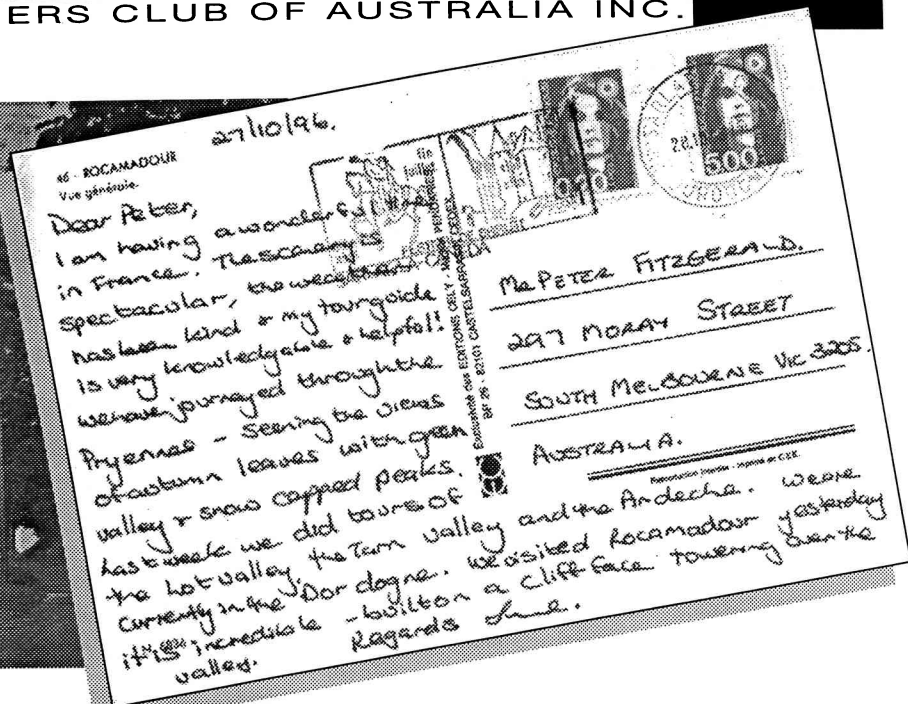 ERS CLUB OF AUSTRALIA INC.
27/10/96.
46 - ROCAMADOUR
Vue générale.
Dear Peter,
I am having a wonderful time
in France. The scenery is
spectacular, the weather
has been kind & my tourguide
is very knowledgable & helpful!
we have journeyed through the
Pryennes - seeing the views
of autumn leaves with green
valley & snow capped peaks.
Last week we did tours of
the Lot valley, the Tarn valley and the Ardeche. We are
currently in the Dordogne. We visited Rocamadour yesterday
it is incredible - built on a cliff face towering over the
valley. Regards
Exclusivité des EDITIONS CELY - MARK PENDARIES
BP 26 - 82101 CASTELSARRASIN CEDEX
5.00
MR PETER FITZGERALD.
297 MORAY STREET
SOUTH MELBOURNE VIC 3205.
AUSTRALIA.
Reproduction interdite - Imprimé en C.E.E.